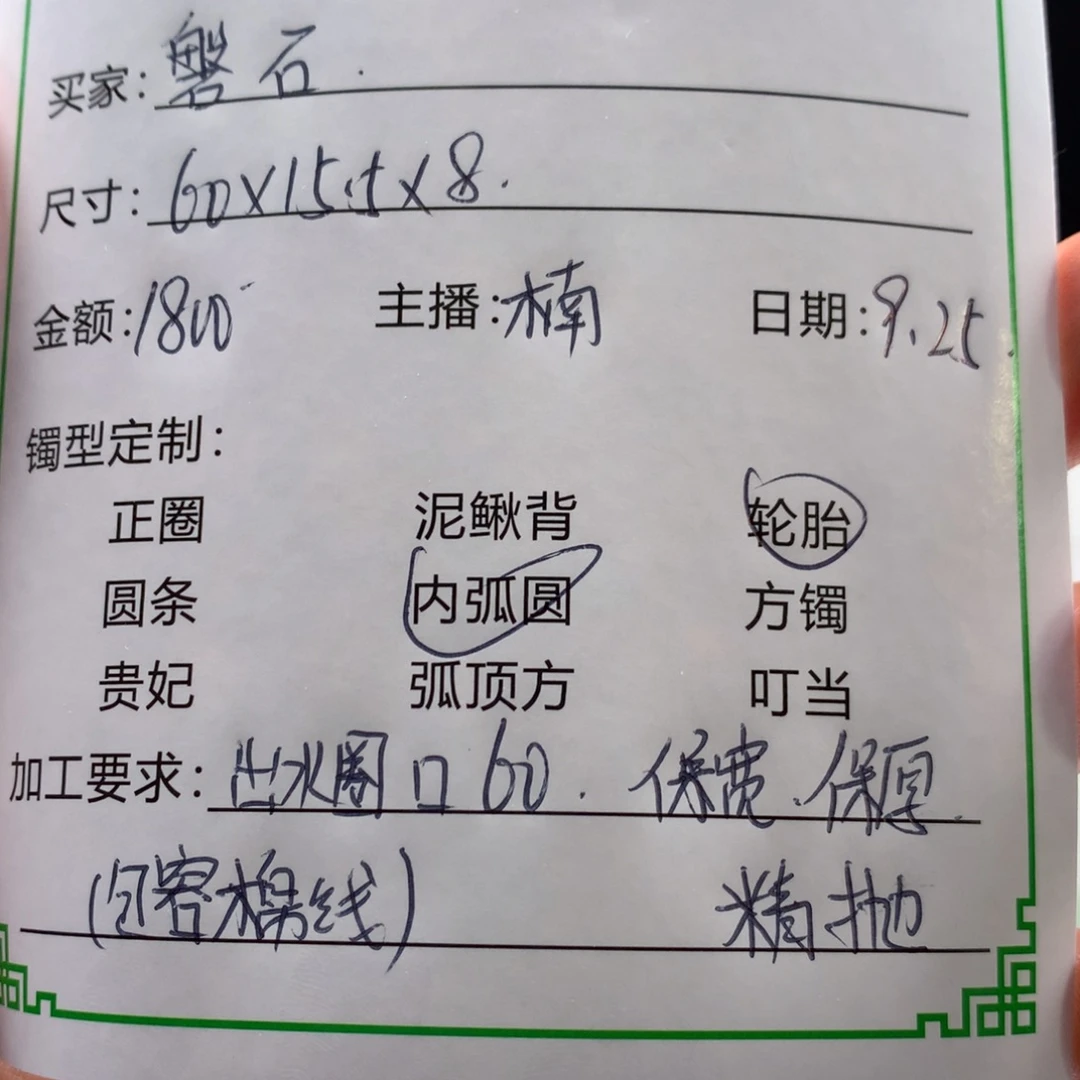 买家：磐石.
尺寸：60×15.5×8.
金额：1800 主播：楠 日期：9.25.
镯型定制：
正圈 泥鳅背 轮胎
圆条 内弧圆 方镯
贵妃 弧顶方 叮当
加工要求：出水圈口60. 保宽.保厚.
(包容棉线) 精抛